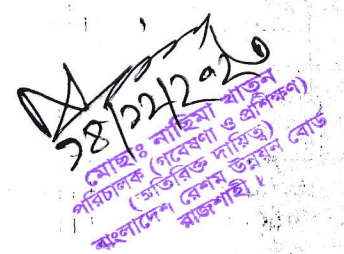 ১৪/১২/২০২০
মোছাঃ নাছিমা খাতুন
পরিচালক (গবেষণা ও প্রশিক্ষণ)
(অতিরিক্ত দায়িত্ব)
বাংলাদেশ রেশম উন্নয়ন বোর্ড
রাজশাহী।